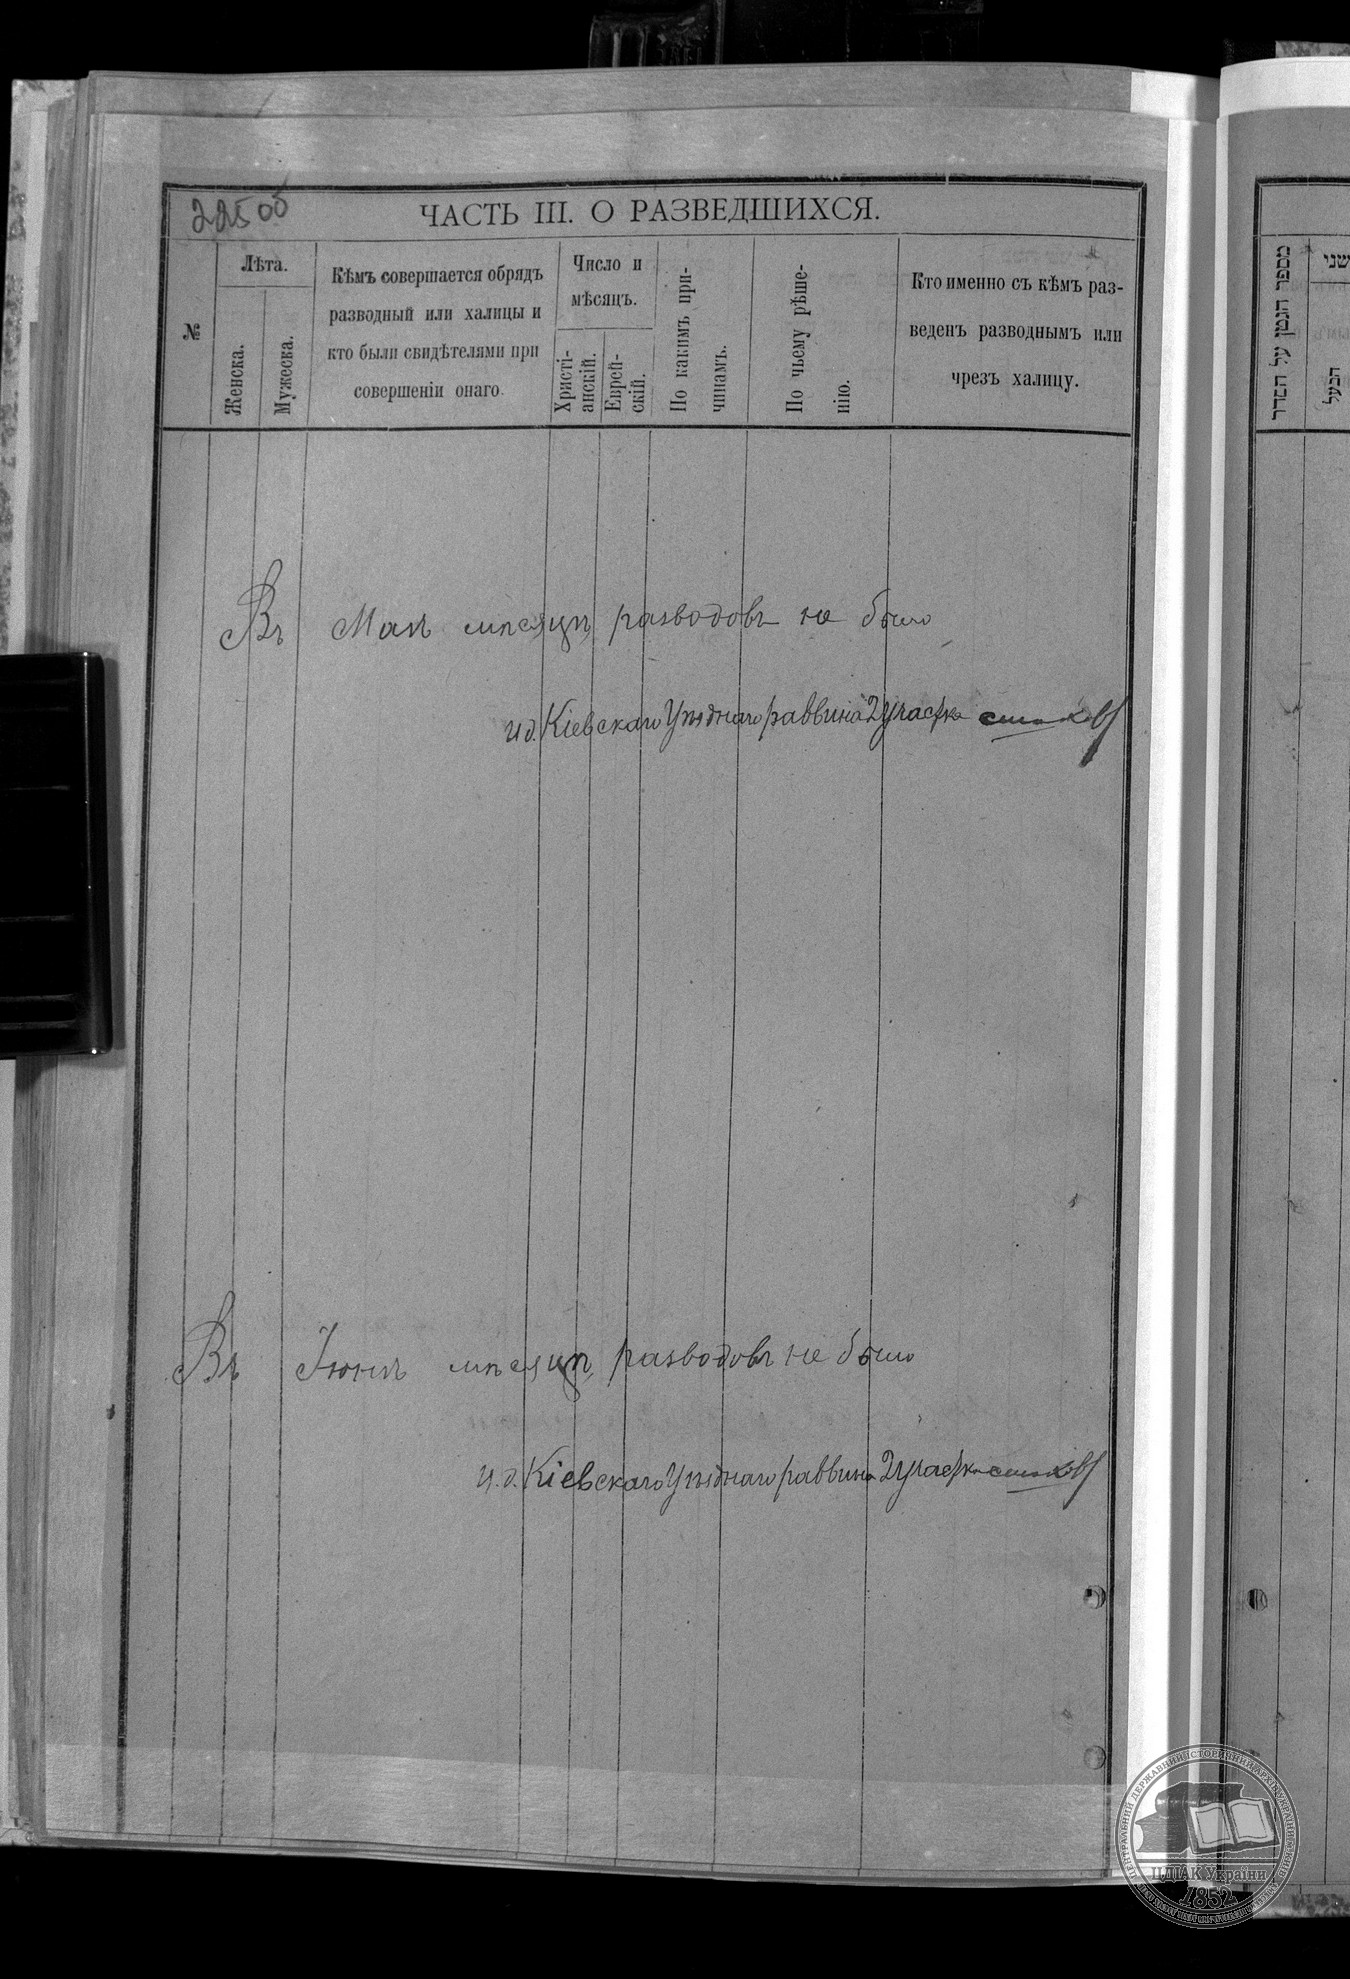 225об
ЧАСТЬ III. О РАЗВЕДШИХСЯ.
№
Лѣта.
Женска.
Мужеска.
Кѣмъ совершается обрядъ
разводный или халицы и
кто были свидѣтелями при
совершеніи онаго.
Число и
мѣсяцъ.
Христі-
анскій.
Еврей-
скій.
По какимъ при-
чинамъ.
По чьему рѣше-
нію.
Кто именно съ кѣмъ раз-
веденъ разводнымъ или
чрезъ халицу.
Въ Маѣ мѣсяцѣ разводовъ не было
И д. Кіевскаго Уѣзднаго раввина 2 участка
Въ Іюнѣ мѣсяцѣ разводовъ не было
И. д. Кіевскаго Уѣзднаго раввина 2 участка
מספר הגטין על הסדר
שני
הבעל
ЦЕНТРАЛЬНИЙ ДЕРЖАВНИЙ ІСТОРИЧНИЙ АРХІВ УКРАЇНИ
ЦДІАК України
1852